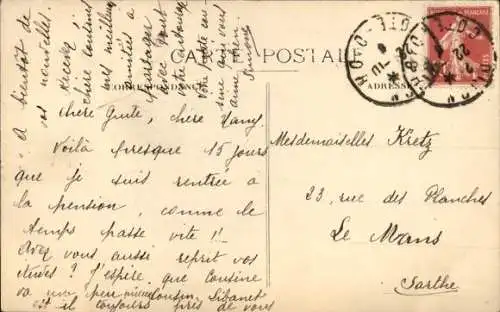 CARTE POSTALE
CORRESPONDANCE
ADRESSE
chère Fany,
Voilà presque 15 jours
que je suis rentrée à
la pension, comme le
temps passe vite !!
Avez vous aussi repris vos
études ? J'espère que Cousine
va un peu mieux Cousin
est il toujours près de vous
A bientôt de
vos nouvelles.
Recevez
chère cousine
mes meilleures
amitiés à
partager
avec
votre cousine
Simone
Mesdemoiselles Kretz
23, rue des Planches
Le Mans
Sarthe